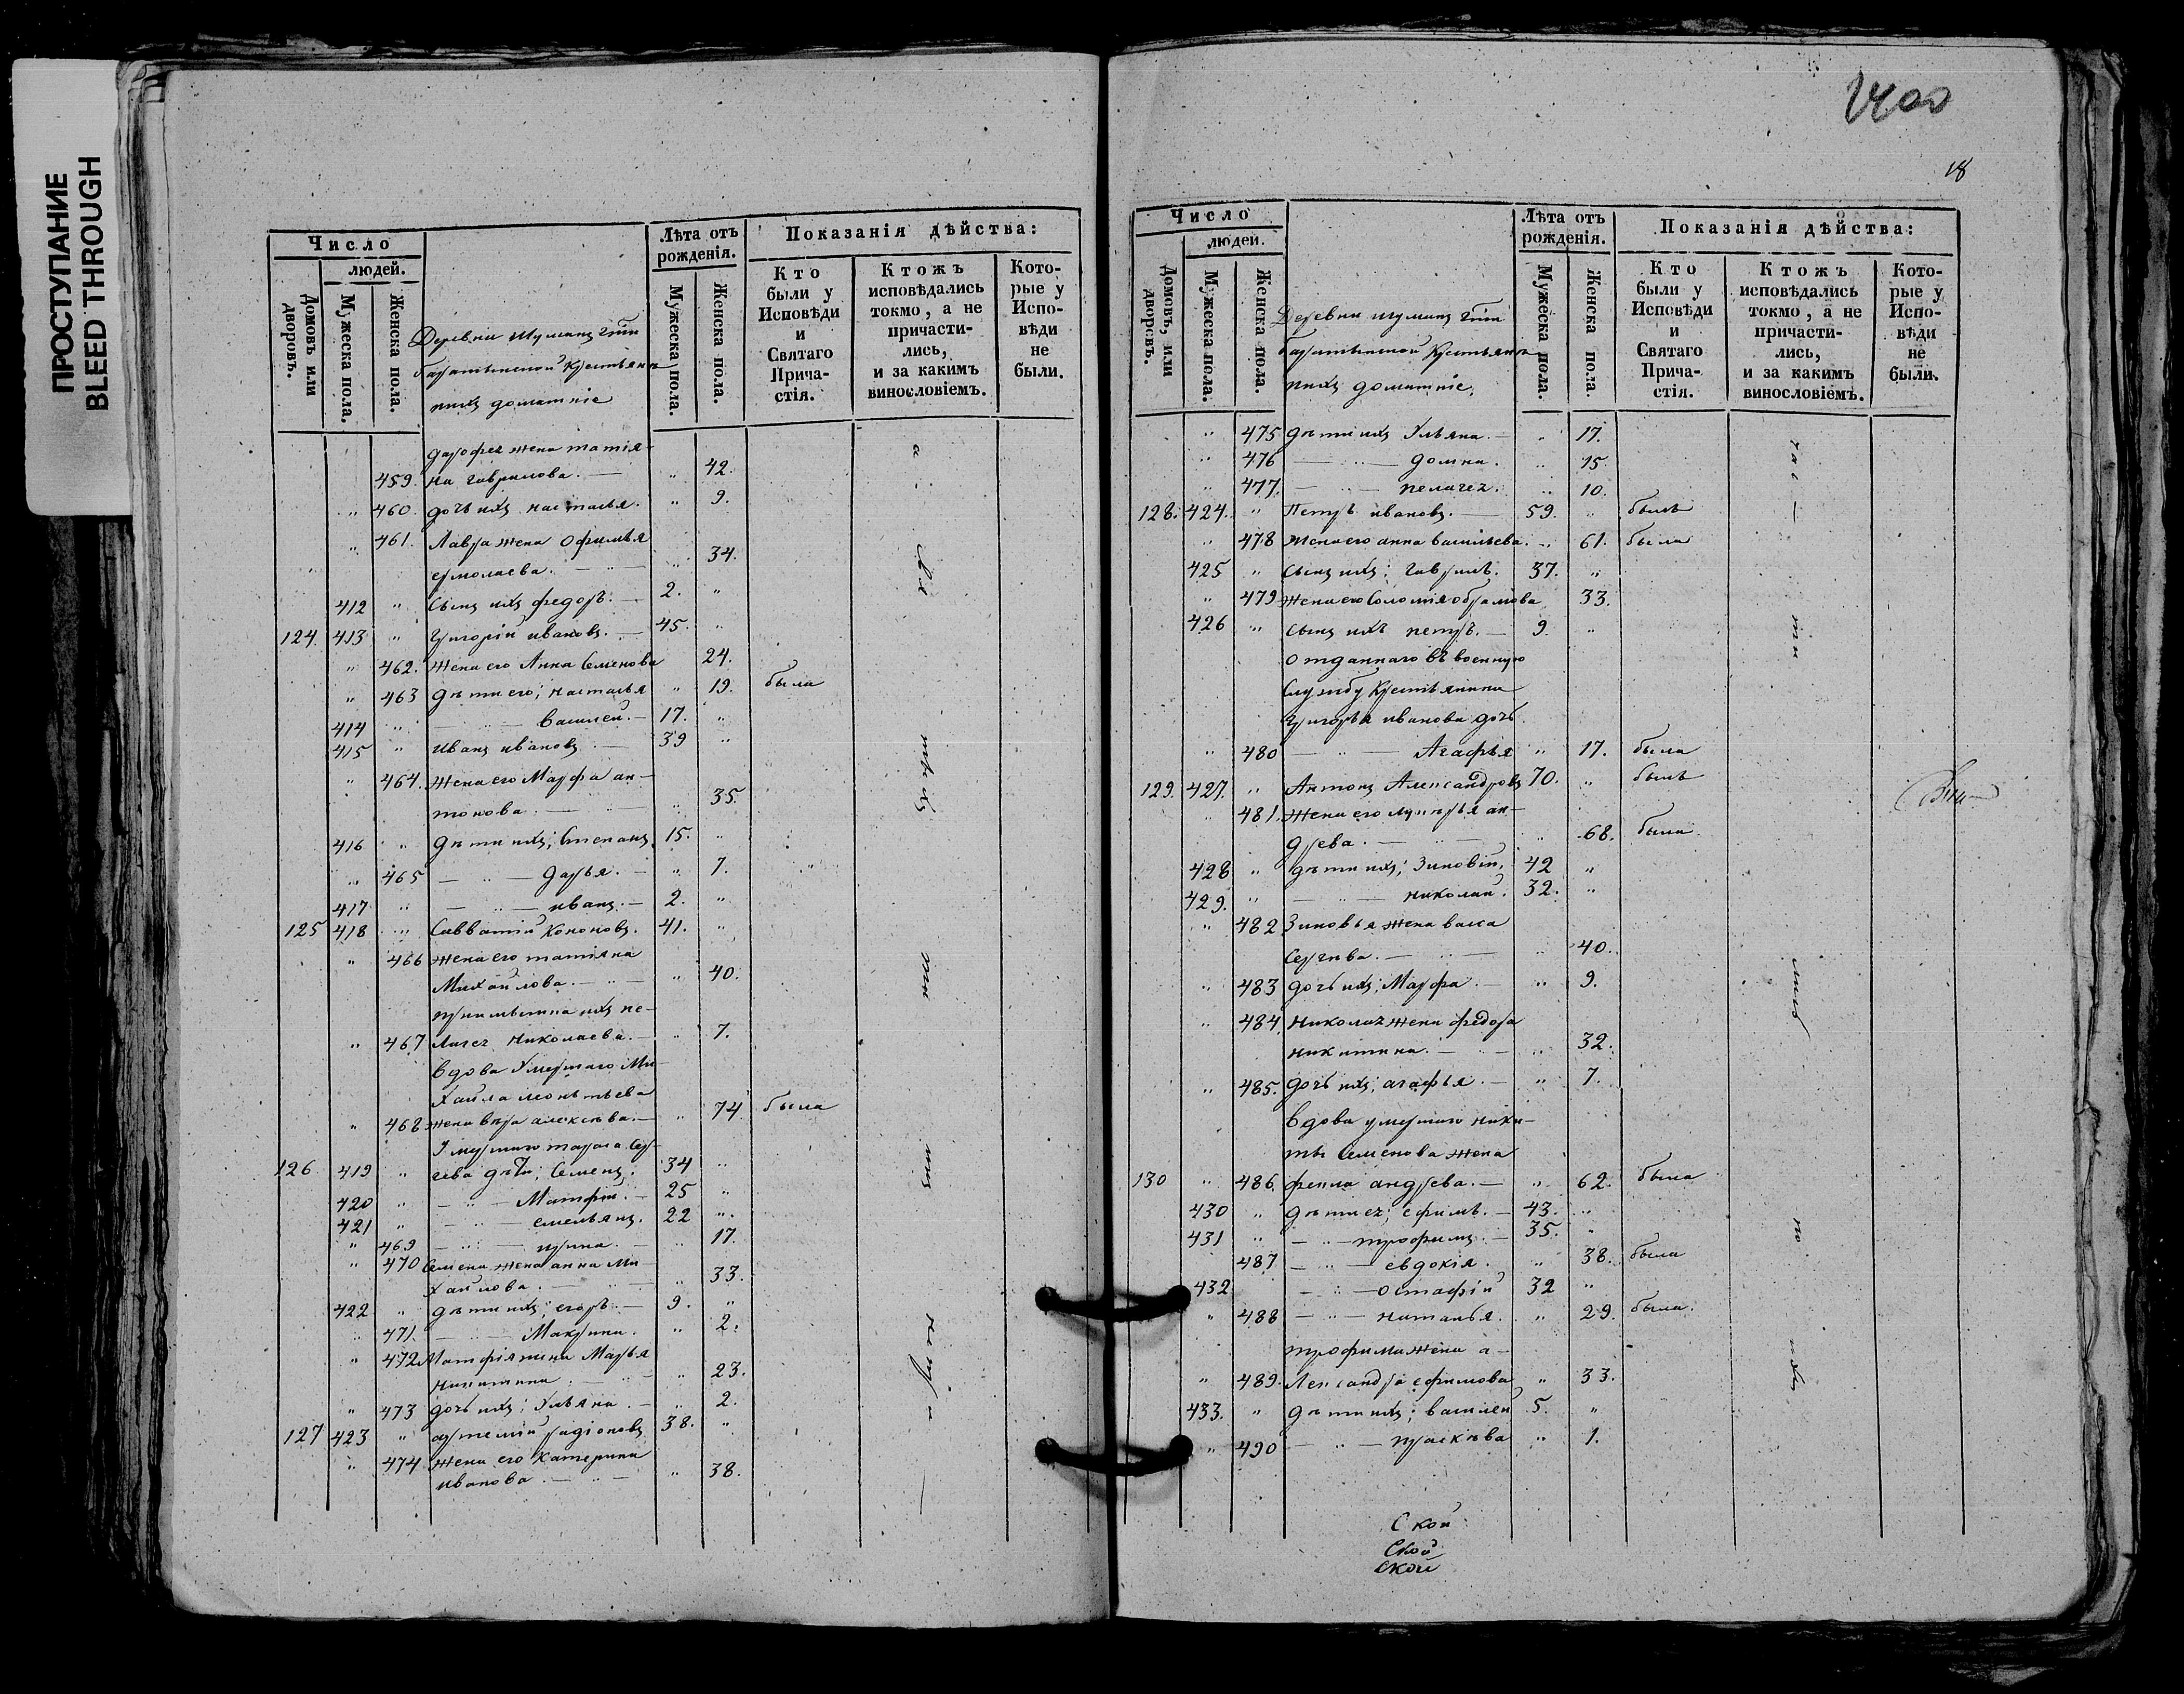 ПРОСТУПАНИЕ
BLEED THROUGH
Число
людей.
Домовъ или дворовъ.
Мужеска пола.
Женска пола.
Деревни
Крестьяне
ихъ домашніе
Лѣта отъ рожденія.
Мужеска пола.
Женска пола.
Показанія дѣйства:
Кто были у Исповѣди и Святаго Причастія.
Ктожъ исповѣдались токмо, а не причастились, и за какимъ винословіемъ.
Которые у Исповѣди не были.
дарофея жена татія-
459. на гаврилова. — " 42.
" 460. дочь ихъ настасья. " 9.
" 461. Лавра жена Офимья
ермолаева. — " 34.
412 " Сынъ ихъ федоръ. — 2. "
124. 413 " Григорій ивановъ. — 45. "
" 462. Жена его Анна Семенова 24.
" 463 дѣти его; настасья " 19. была
414 " — " — василей. — 17. "
415 " иванъ ивановъ. — 39 "
" 464. Жена его Марфа ан-
тонова. — " — " 35.
416 " дѣти ихъ; Степанъ. 15. "
" 465 — " — дарья. — " 7.
417 " — " — иванъ. — 2. "
125 418 " Савватій Кононовъ. 41. "
" 466 Жена его татіяна
Михайлова. — " — " 40.
ихъ пе-
" 467 лагея Николаева. — " 7.
вдова Умершаго Ми-
хайла леонтьева
" 468 жена вѣра алексѣва. — " 74. была
Умершаго тараса Сер-
126. 419 " гева дѣти; Семенъ. 34 "
420 " — " — Матфей. — 25 "
421 " — " — емельянъ. 22 "
" 469 — " — ирина. — " 17.
" 470 Семена жена анна Ми-
хайлова. — " — " 33.
422 " дѣти ихъ; егоръ. — 9. "
" 471. — " — Макрина. " 2.
" 472 Матфія жена Марья
Никитина. — " 23.
" 473 дочь ихъ; Ульяна. — " 2.
127 423 " артемій радіоновъ 38. "
" 474 Жена его Катерина
иванова. — " — " 38.
18
Число
людей.
Домовъ, или дворовъ.
Мужеска пола.
Женска пола.
Деревни
Крестьяне
ихъ домашніе.
Лѣта отъ рожденія.
Мужеска пола.
Женска пола.
Показанія дѣйства:
Кто были у Исповѣди и Святаго Причастія.
Ктожъ исповѣдались токмо, а не причастились, и за какимъ винословіемъ.
Которые у Исповѣди не были.
" 475 дѣти ихъ Ульяна. — " 17.
" 476 — " — домна. " 15.
" 477. — " — пелагея. " 10.
128. 424. " Петръ ивановъ. — 59. " былъ
" 478 Жена его анна васильева. " 61. была
425 " Сынъ ихъ; гаврилъ. 37. "
" 479 Жена его Соломія абрамова 33.
426 " Сынъ ихъ петръ. — 9. "
отданнаго въ военную
Службу Крестьянина
Григорья иванова дочь
" 480 — " — Агафья " 17. была
129. 427. " Антонъ Александровъ 70. " былъ
" 481. Жена его лукерья ан-
древа. — " — " 68. была
428 " дѣти ихъ; Зиновій. 42 "
429. " — " — николай. 32. "
" 482 Зиновья жена васса
Сергѣва. — " — " 40.
" 483 дочь ихъ; Марфа. — " 9.
" 484 николая жена федора
никитина. — " — " 32.
" 485. дочь ихъ; агафья. — " 7.
вдова умершаго ники-
ты Семенова жена
130 " 486. фекла андрева. — " 62. была
430 " дѣти ея; ефимъ. — 43. "
431 " — " — трофимъ. — 35. "
487 — " — евдокія. " 38. была
432 — " — остафій 32 "
" 488 — " — наталья. " 29. была.
трофима жена а-
" 489. лександра ефимова " 33.
433. " дѣти ихъ; василей 5. "
" 490 — " — праскѣва " 1.
Ской
Ской
Ской